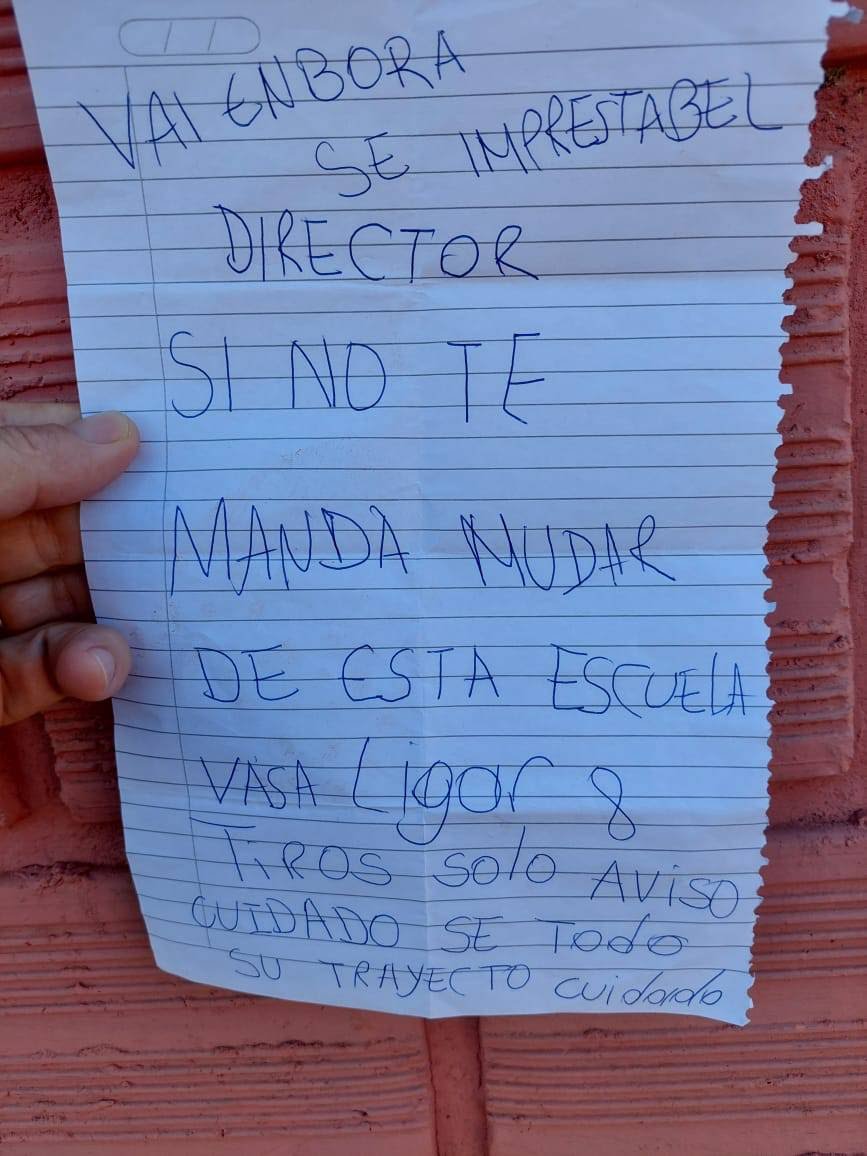 VAI ENBORA
SE IMPRESTABEL
DIRECTOR
SI NO TE
MANDA MUDAR
DE ESTA ESCUELA
VASA Ligar 8
TiROS solo AViSO
CUIDADO SE Todo
SU TRAYECTO cuidado